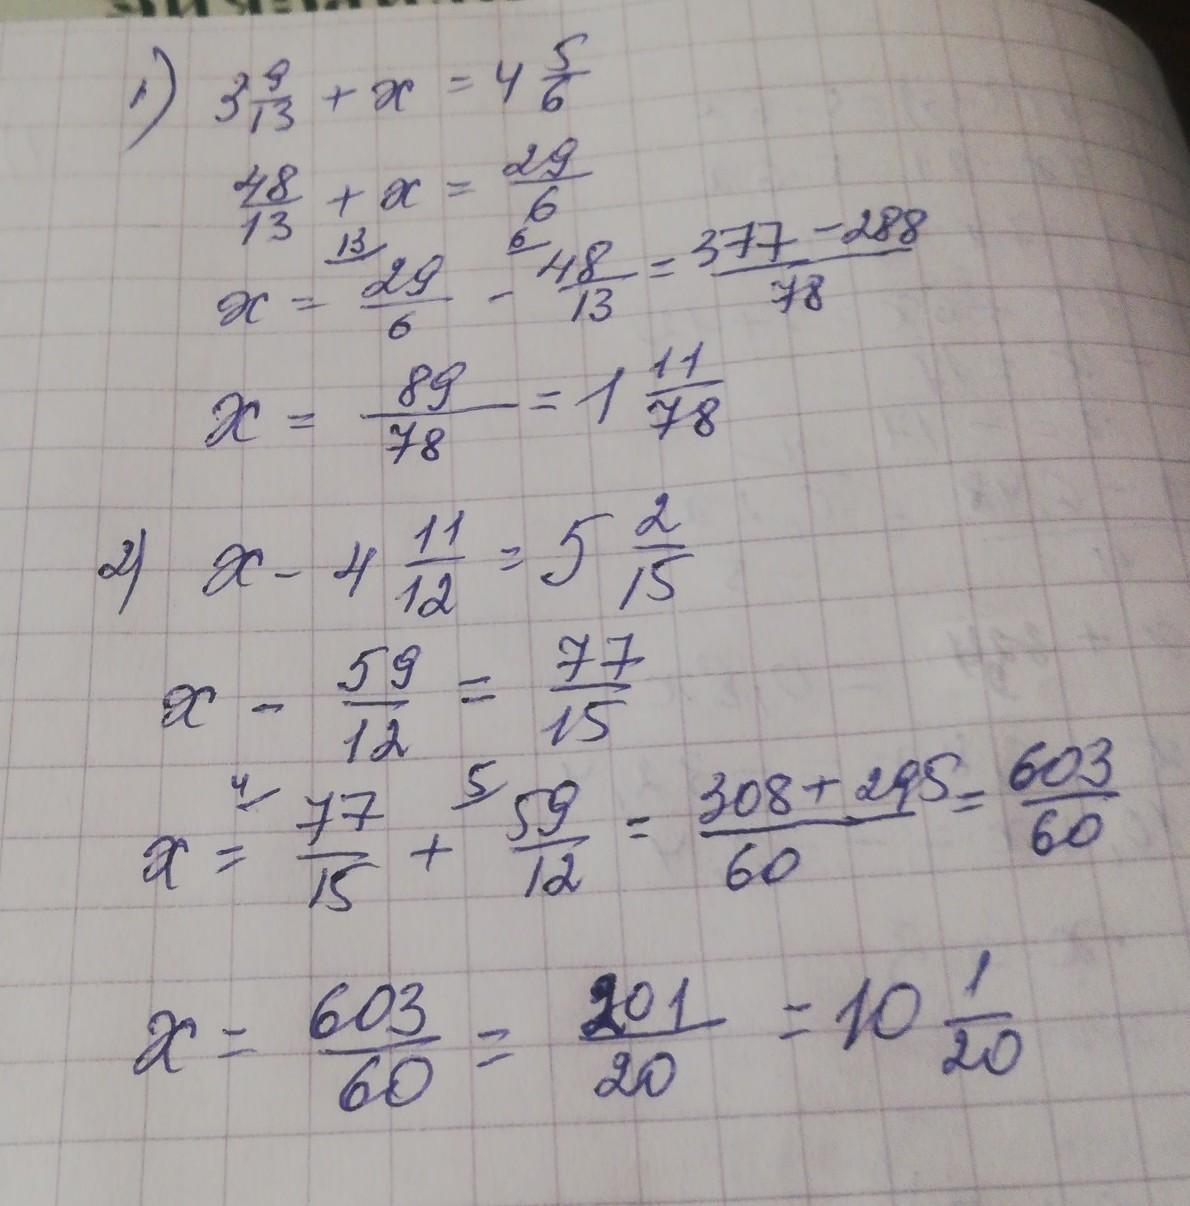 1) 3 9/13 + x = 4 5/6
48/13 + x = 29/6
x = 13/ 29/6 - 6/ 48/13 = (377 - 288)/78
x = 89/78 = 1 11/78
2) x - 4 11/12 = 5 2/15
x - 59/12 = 77/15
x = 4/ 77/15 + 5/ 59/12 = (308 + 295)/60 = 603/60
x = 603/60 = 201/20 = 10 1/20